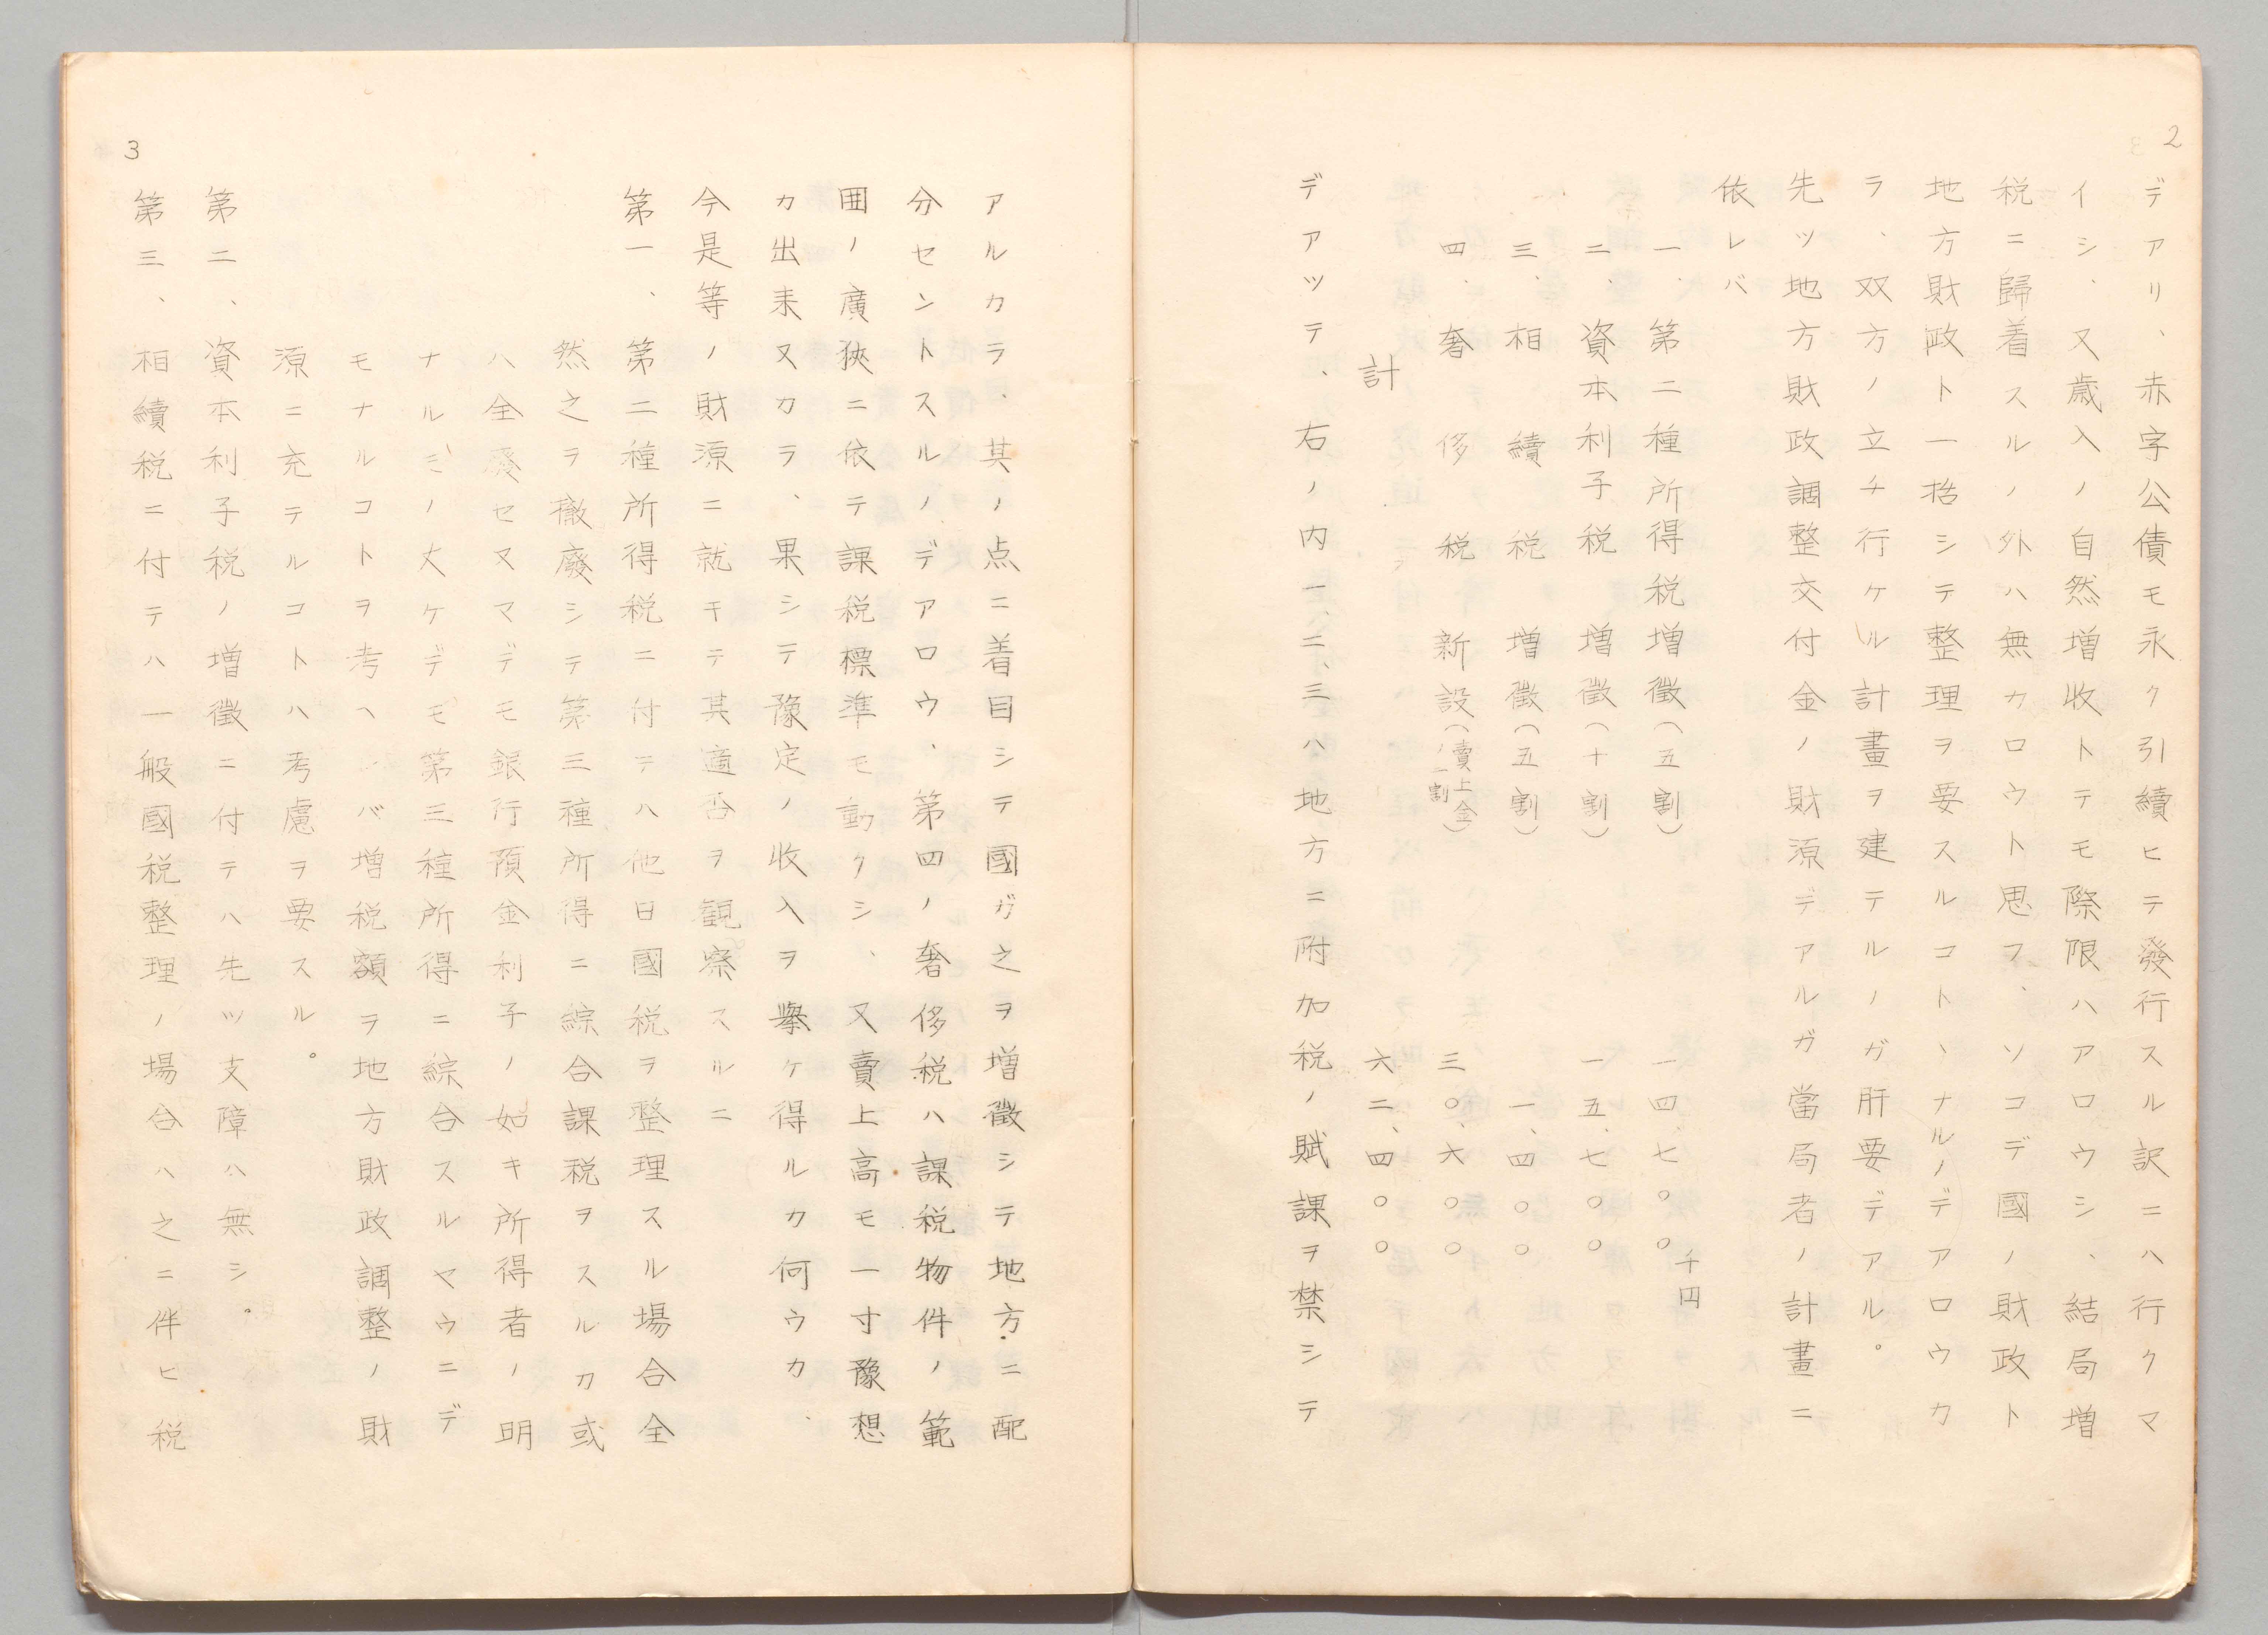 2
デアリ、赤字公債モ永ク引續ヒテ發行スル訳ニハ行クマ
イシ、又歳入ノ自然増收トテモ際限ハアロウシ、結局増
税ニ歸着スルノ外ハ無カロウト思フ、ソコデ國ノ財政ト
地方財政ト一括シテ整理ヲ要スルコトヽナルノデアロウカ
ラ、双方ノ立チ行ケル計畫ヲ建テルノガ肝要デアル。
先ッ地方財政調整交付金ノ財源デアルガ當局者ノ計畫ニ
依レバ
一、第二種所得税増徴(五割) 一四、七〇〇千円
二、資本利子税増徴(十割) 一五、七〇〇
三、相續税増徴(五割) 一、四〇〇
四、奢侈税新設(賣上金ノ一割) 三〇、六〇〇
計 六二、四〇〇
デアツテ、右ノ内一、二、三ハ地方ニ附加税ノ賦課ヲ禁シテ
アルカラ、其ノ点ニ着目シテ國ガ之ヲ増徴シテ地方ニ配
分セントスルノデアロウ、第四ノ奢侈税ハ課税物件ノ範
囲ノ廣狹ニ依テ課税標準モ動クシ、又賣上高モ一寸豫想
カ出来ヌカラ、果シテ豫定ノ收入ヲ擧ケ得ルカ何ウカ、
今是等ノ財源ニ就キテ其適否ヲ観察スルニ
第一、第二種所得税ニ付テハ他日國税ヲ整理スル場合全
然之ヲ撤廢シテ第三種所得ニ綜合課税ヲスルカ或
ハ全廢セヌマデモ銀行預金利子ノ如キ所得者ノ明
ナルミノ丈ケデモ第三種所得ニ綜合スルヤウニデ
モナルコトヲ考ヘレバ増税額ヲ地方財政調整ノ財
源ニ充テルコトハ考慮ヲ要スル。
第二、資本利子税ノ増徴ニ付テハ先ツ支障ハ無シ。
第三、相續税ニ付テハ一般國税整理ノ場合ハ之ニ伴ヒ税
3